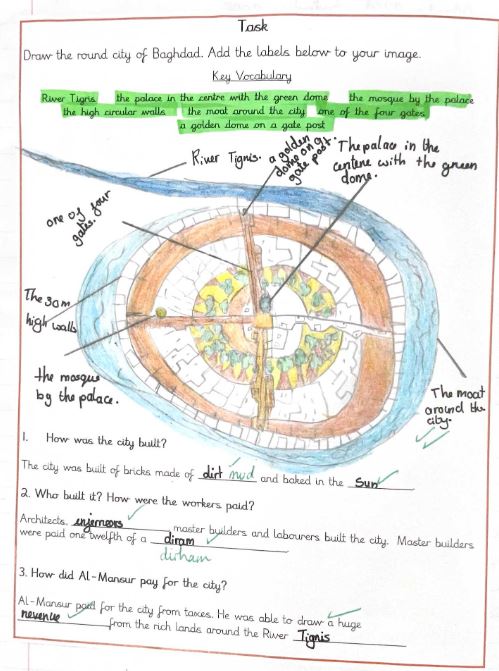 Task
Draw the round city of Baghdad. Add the labels below to your image.
Key Vocabulary
River Tigris the palace in the centre with the green dome the mosque by the palace
the high circular walls the moat around the city one of the four gates
a golden dome on a gate post
River Tignis.
a golden
dome on a
gate post.
The palace in the
centene with the green
dome.
one of four
gates.
The 30m
high walls
the mosque
by the palace.
The moat
around the
city.
1. How was the city built?
The city was built of bricks made of dirt mud and baked in the Sun
2. Who built it? How were the workers paid?
Architects, enjerneers, master builders and labourers built the city. Master builders
were paid one twelfth of a diram
dirham
3. How did Al-Mansur pay for the city?
Al-Mansur paid for the city from taxes. He was able to draw a huge
nevenue from the rich lands around the River Tignis